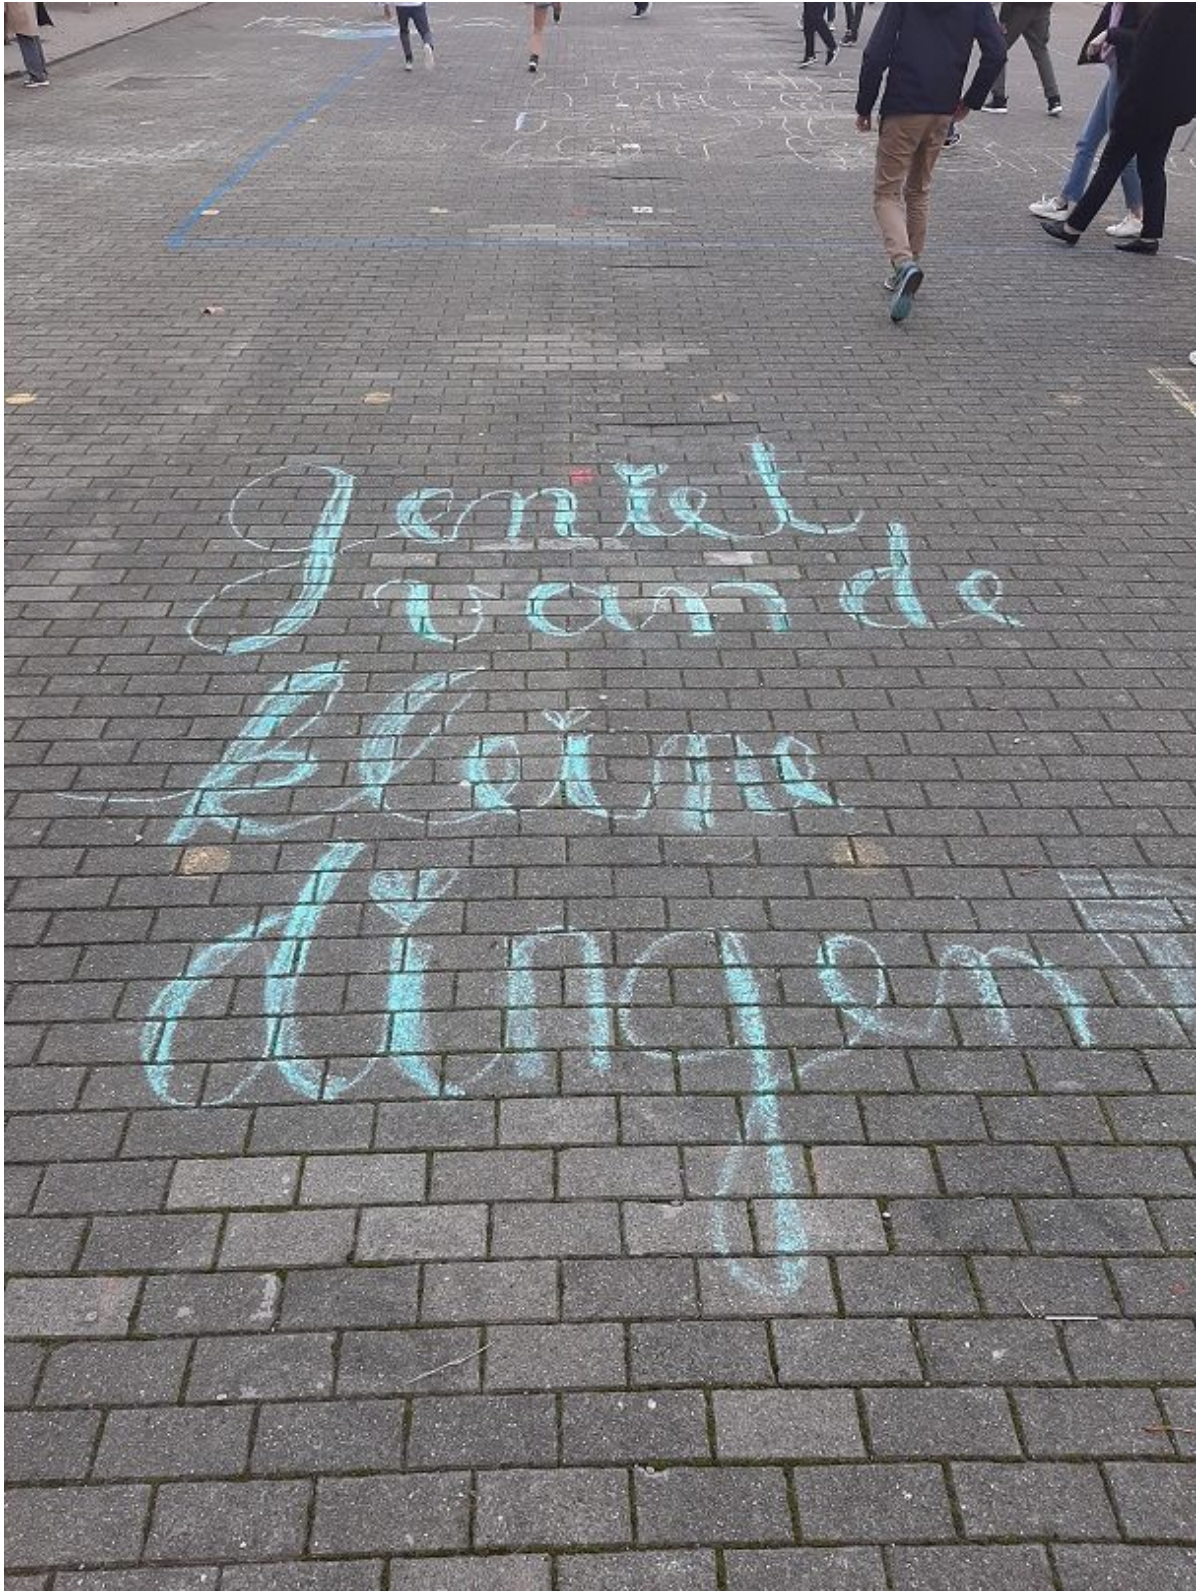 Geniet
van de
kleine
dingen